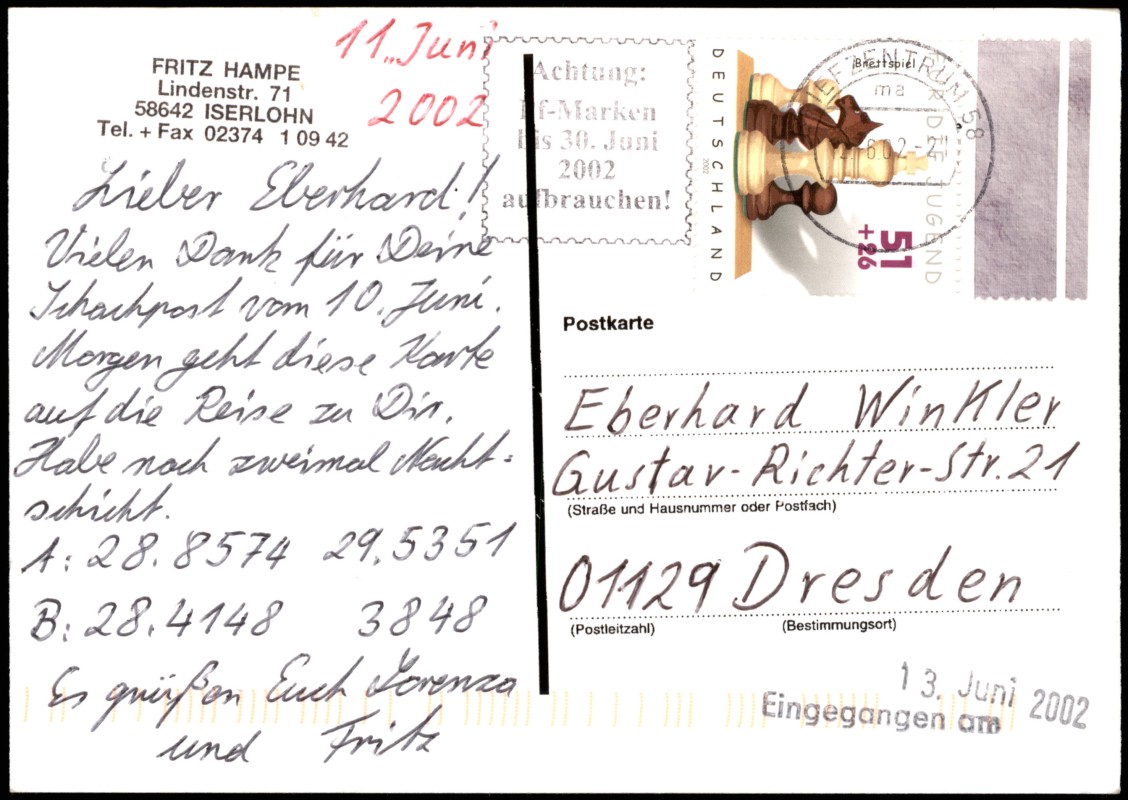 FRITZ HAMPE
Lindenstr. 71
58642 ISERLOHN
Tel. + Fax 02374 1 09 42
11. Juni
2002
Lieber Eberhard!
Vielen Dank für Deine
Schachpost vom 10. Juni.
Morgen geht diese Karte
auf die Reise zu Dir.
Habe noch zweimal Nacht=
schicht.
A: 28.8574 29.5351
B: 28.4148 3848
Es grüßen Euch Lorenza
und Fritz
Achtung:
Pf-Marken
bis 30. Juni
2002
aufbrauchen!
DEUTSCHLAND
2002
Brettspiel
FÜR DIE JUGEND
51
+26
BRIEFZENTRUM 58
ma
6.02-21
Postkarte
Eberhard Winkler
Gustav-Richter-Str. 21
(Straße und Hausnummer oder Postfach)
01129 Dresden
(Postleitzahl) (Bestimmungsort)
13. Juni 2002
Eingegangen am